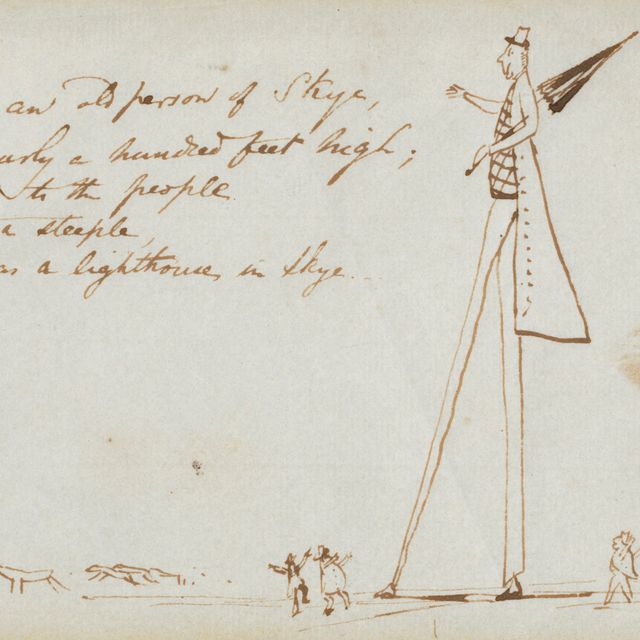 an old person of Skye,
a hundred feet high;
to the people
a steeple,
as a lighthouse, in Skye